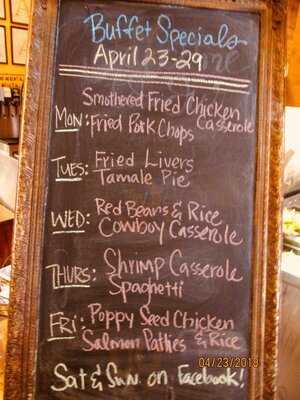 Buffet Specials
April 23-29
Smothered Fried Chicken
Casserole
MON: Fried Pork Chops
TUES: Fried Livers
Tamale Pie
WED: Red Beans & Rice
Cowboy Casserole
THURS: Shrimp Casserole
Spaghetti
FRI: Poppy Seed Chicken
Salmon Patties & Rice
04/23/2018
Sat & Sun. on Facebook!